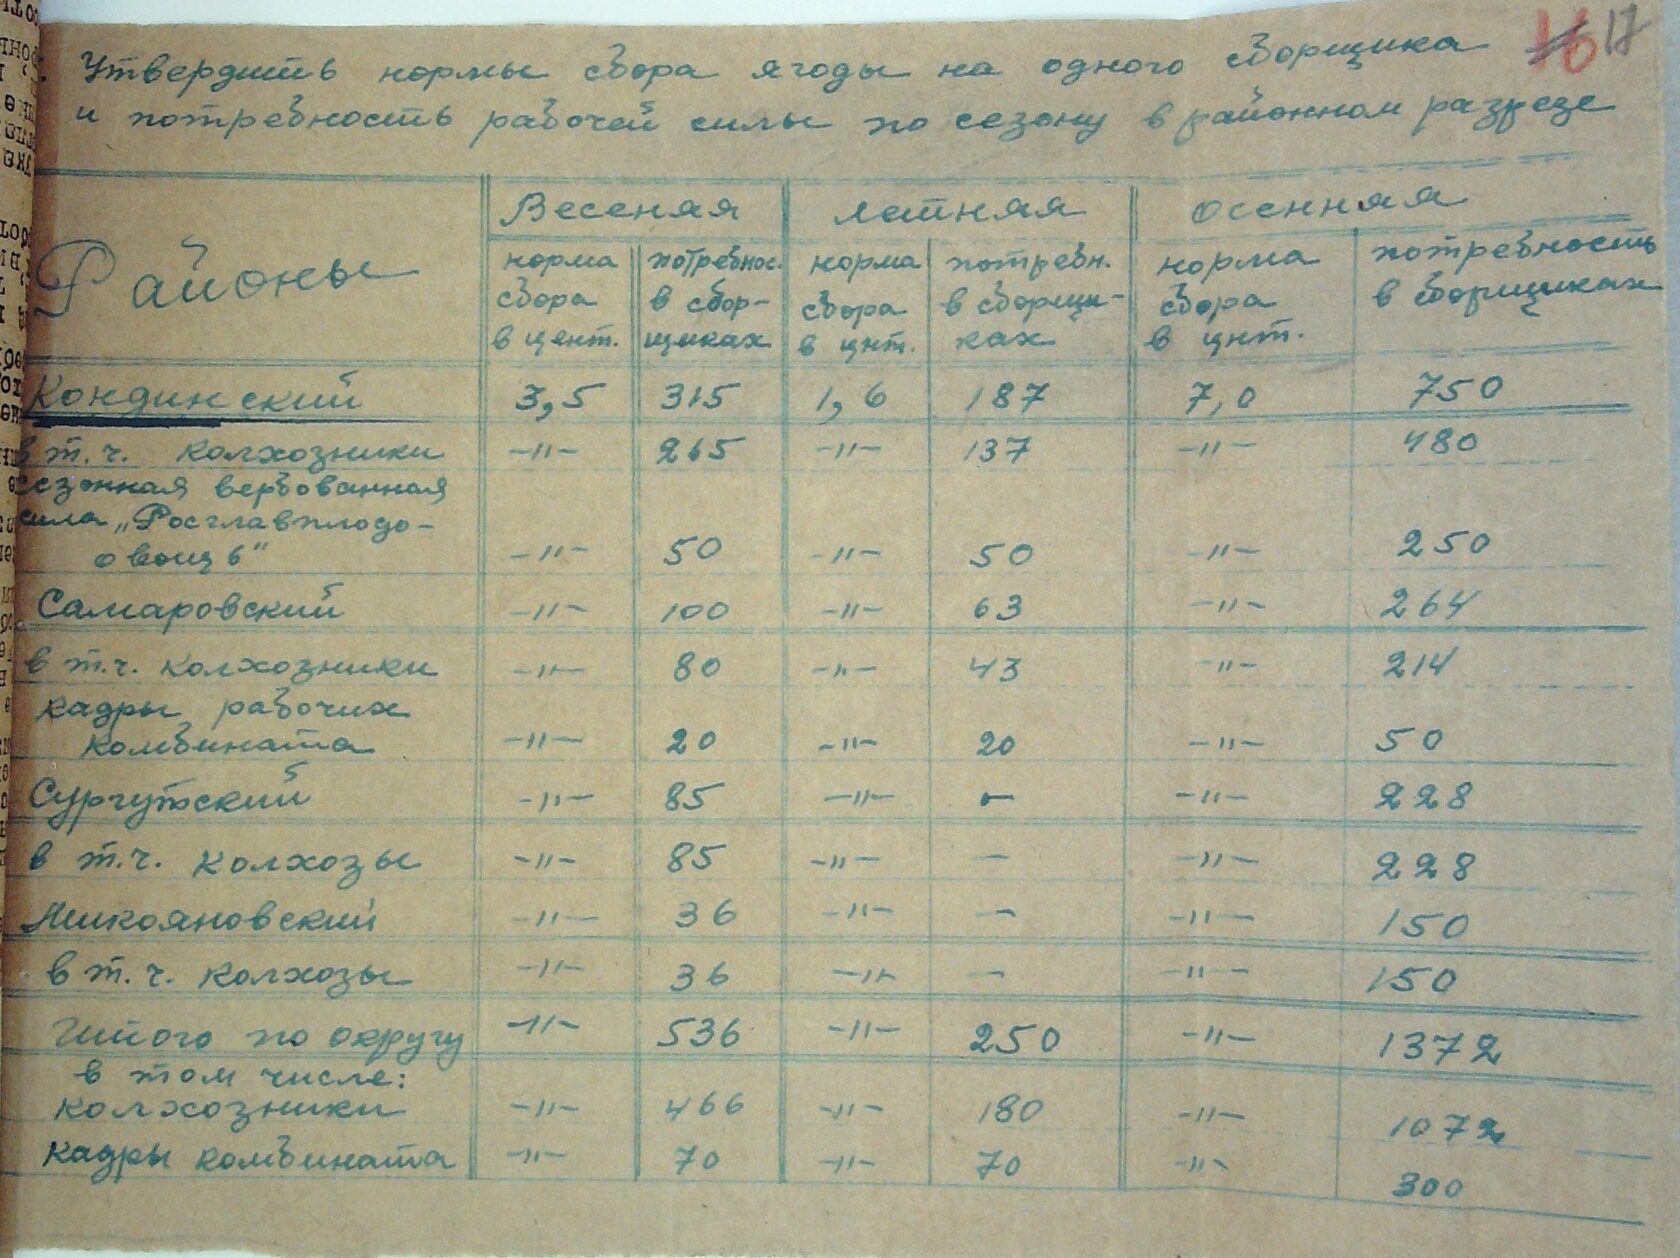 16 17
Утвердить нормы сбора ягоды на одного сборщика
и потребность рабочей силы по сезону в районном разрезе
Районы Весеняя Летняя Осенняя
норма сбора в цент. потребнос. в сборщиках норма сбора в цнт. потребн. в сборщиках норма сбора в цнт. потребность в сборщиках
Кондинский 3,5 315 1,6 187 7,0 750
в т.ч. колхозники -"- 265 -"- 137 -"- 480
сезонная вербованная
сила „Росглавплодо-
овощь" -"- 50 -"- 50 -"- 250
Самаровский -"- 100 -"- 63 -"- 264
в т.ч. колхозники -"- 80 -"- 43 -"- 214
кадры рабочих
комбината -"- 20 -"- 20 -"- 50
Сургутский -"- 85 -"- - -"- 228
в т.ч. колхозы -"- 85 -"- - -"- 228
Микояновский -"- 36 -"- - -"- 150
в т.ч. колхозы -"- 36 -"- - -"- 150
Итого по округу -"- 536 -"- 250 -"- 1372
в том числе:
колхозники -"- 466 -"- 180 -"- 1072
кадры комбината -"- 70 -"- 70 -"- 300